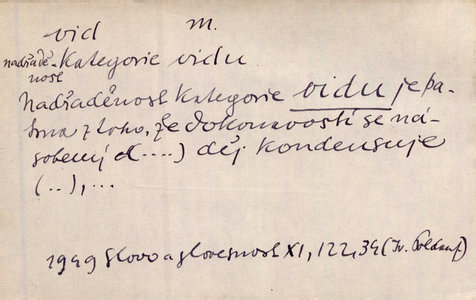 vid m.
nadřaděnost kategorie vidu
Nadřaděnost kategorie vidu je pa-
trna z toho, že dokonavostí se ná-
sobený d(....) děj kondensuje
(..), ...
1949 Slovo a slovesnost XI, 122, 34 (Iv. Poldauf)